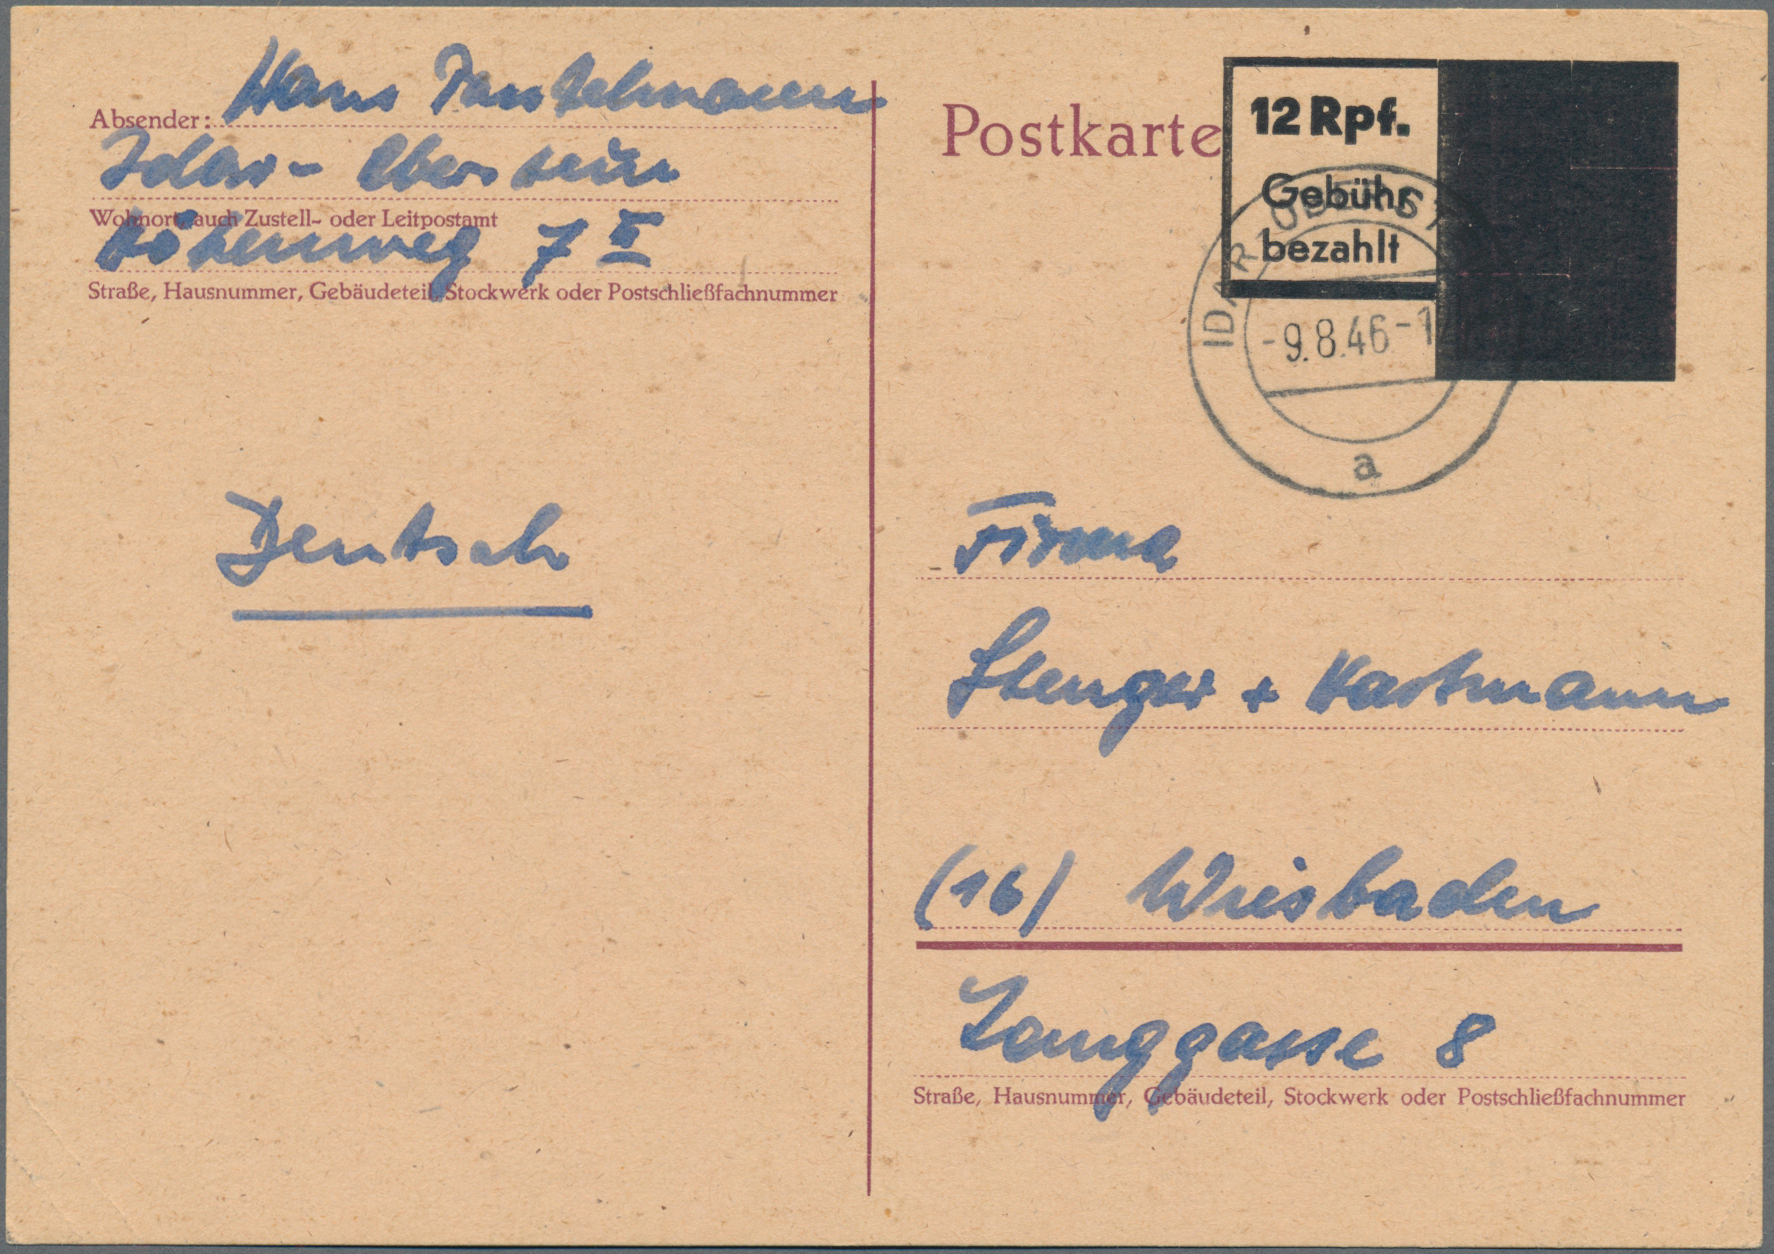 Absender: Hans
Idar-Oberstein
Wohnort, auch Zustell- oder Leitpostamt
Höhenweg 7 II
Straße, Hausnummer, Gebäudeteil, Stockwerk oder Postschließfachnummer
Deutsch
Postkarte
12 Rpf.
Gebühr
bezahlt
IDAR-OBERST
-9.8.46-1
a
Firma
Stenger + Hartmann
(16) Wiesbaden
Langgasse 8
Straße, Hausnummer, Gebäudeteil, Stockwerk oder Postschließfachnummer